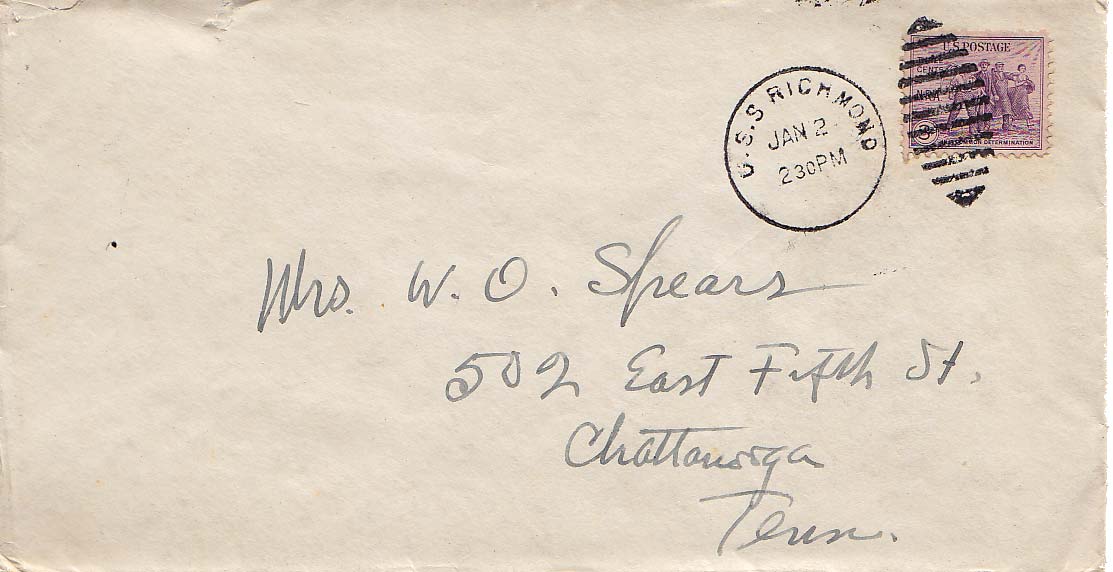 U.S.S RICHMOND
JAN 2
2 30PM
U.S. POSTAGE
CENTS
NRA
3
IN A COMMON DETERMINATION
Mrs. W. O. Spears
502 East Fifth St.
Chattanooga
Tenn.